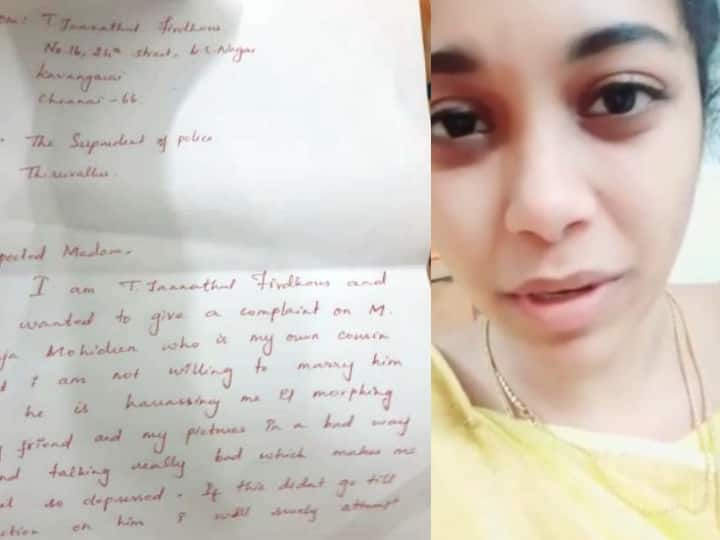 om: T. Jannathul Firdhous
No.16, 24th street, Nagar
Kavangarai
Chennai - 66.
The of police
Thiruvallur.
pected Madam,
I am T. Jannathul Firdhous and
wanted to give a complaint on M.
ja Mohideen who is my own cousin
t i am not willing to marry him
he is me morphing
friend and my pictures in a bad way
nd talking really bad which makes me
el so depressed. If this didnt go till
ction on him I will surely attempt